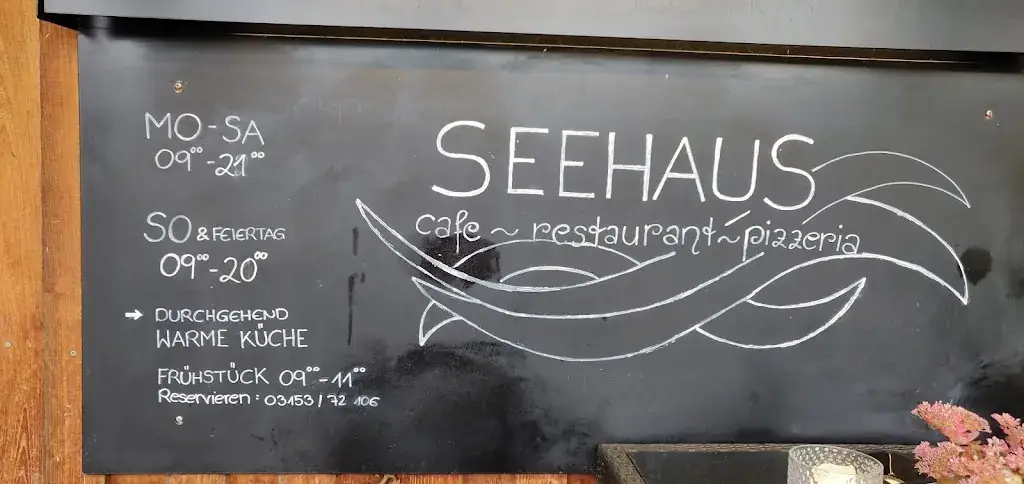 MO-SA
09⁰⁰-21⁰⁰
SO & FEIERTAG
09⁰⁰-20⁰⁰
→ DURCHGEHEND
WARME KÜCHE
FRÜHSTÜCK 09⁰⁰-11⁰⁰
Reservieren: 03153/72 106
SEEHAUS
cafe ~ restaurant ~ pizzeria